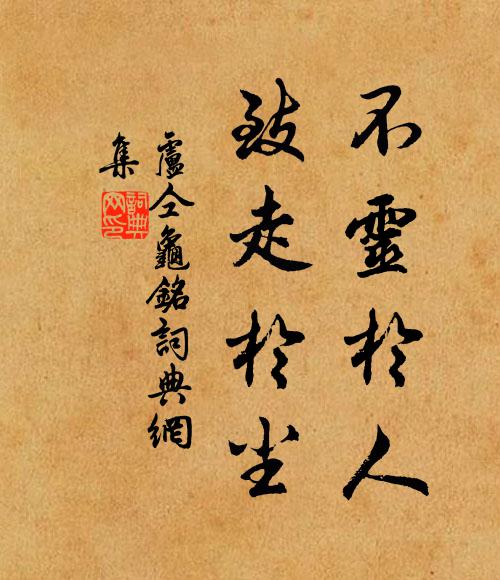 不靈於人
致走於尘
盧仝龜銘詞典網
集
詞典
网印